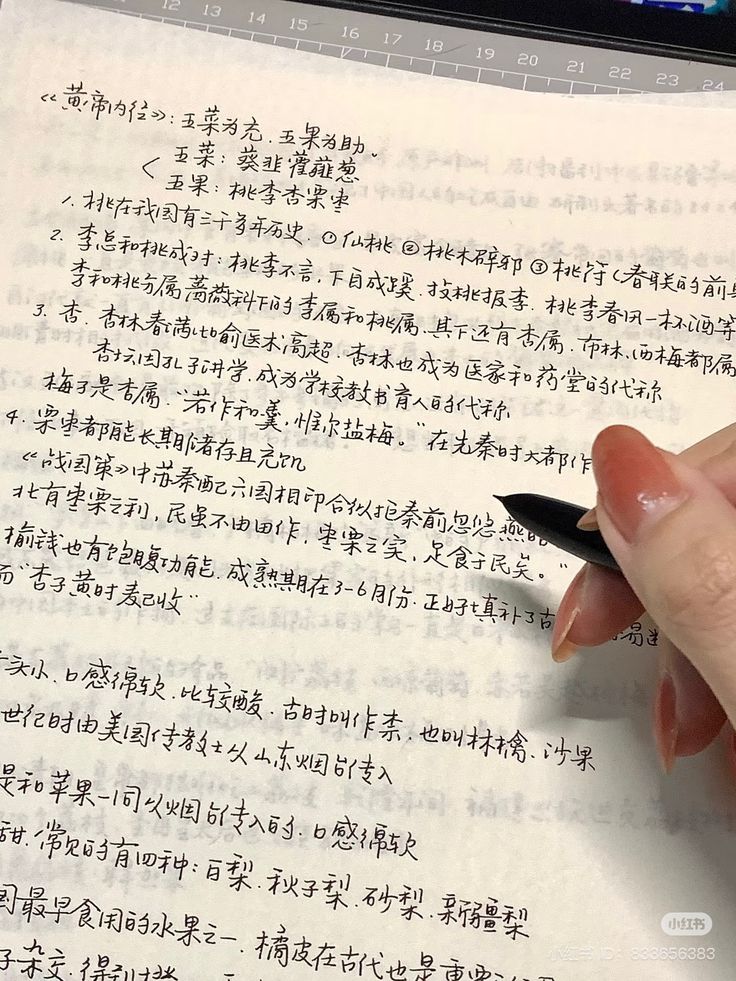 12 13 14 15 16 17 18 19 20 21 22 23 24
《黄帝内径》：五菜为充．五果为助．
五菜：葵韭藿薤葱
五果：桃李杏栗枣
1. 桃在我国有三千多年历史．①仙桃 ②桃木辟邪 ③桃符（春联的前
2. 李总和桃成对：桃李不言，下自成蹊．投桃报李．桃李春风一杯酒等
李和桃分属蔷薇科下的李属和桃属．其下还有杏属．布林、西梅都属
3. 杏．杏林春满比喻医术高超．杏林也成为医家和药堂的代称
杏坛因孔子讲学．成为学校教书育人的代称
梅子是杏属．“若作和羹，惟尔盐梅。”在先秦时大都作
4. 栗枣都能长期储存且充饥
《战国策》中苏秦配六国相印合纵拒秦前忽悠燕
北有枣栗之利，民虽不由田作，枣栗之实，足食于民矣。”
榆钱也有饱腹功能．成熟期在3-6月份．正好填补了古 易
而“杏子黄时麦已收”
头小．口感绵软．比较酸．古时叫作柰．也叫林檎、沙果
世纪时由美国传教士从山东烟台传入
是和苹果一同从烟台传入的．口感绵软
甜．常见的有四种：白梨．秋子梨．砂梨．新疆梨
最早食用的水果之一．橘皮在古代也是重要
子杂交．得到
小红书
小红书 ID: 838656383